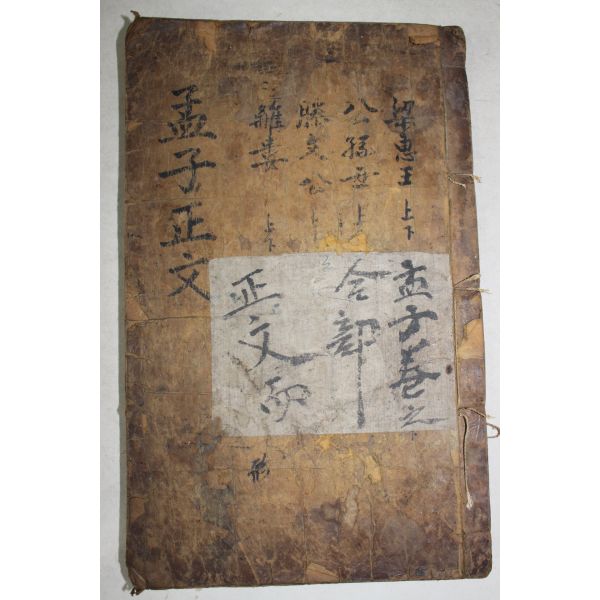 梁惠王 上下
公孫丑 上下
滕文公 上下
離婁 上下
孟子正文
孟子卷之
合部
正文